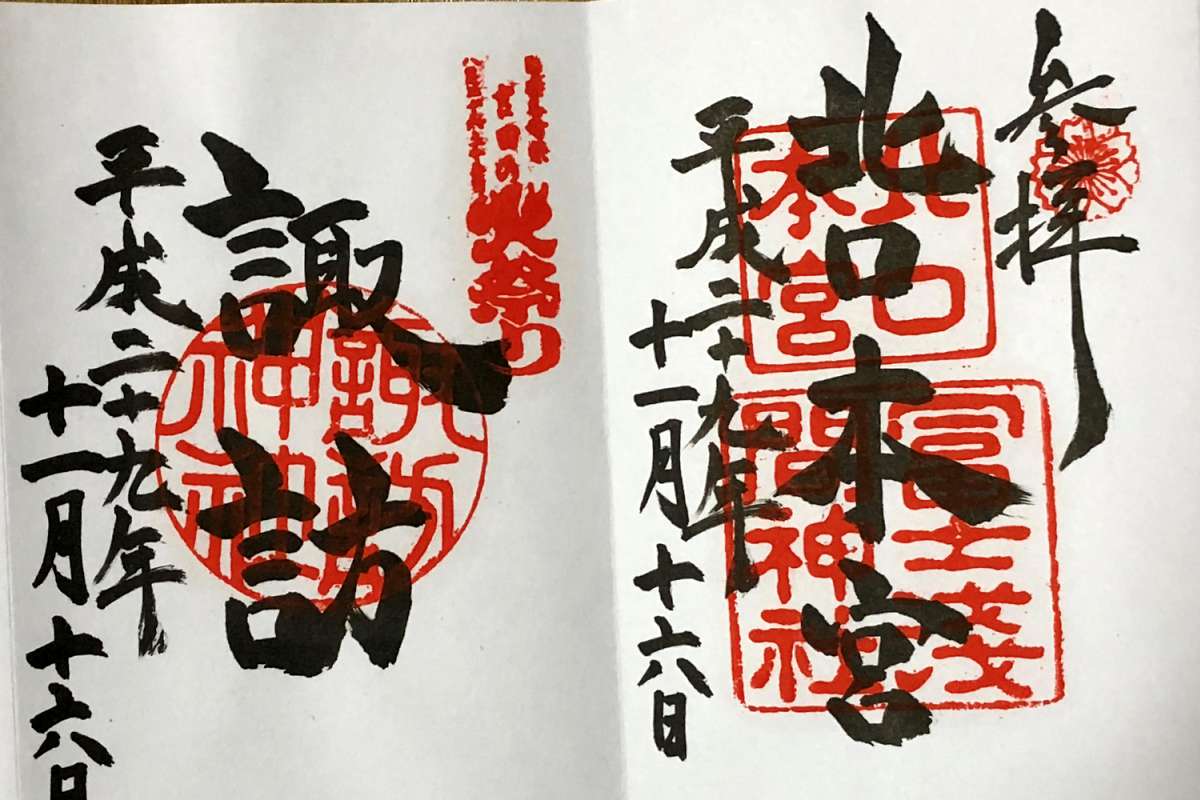 参拝
北口本宮
北口
本宮
冨士浅
間神社
平成二十九年
十一月十六日
吉田の火祭り
諏訪
諏訪
神社
平成二十九年
十一月十六日